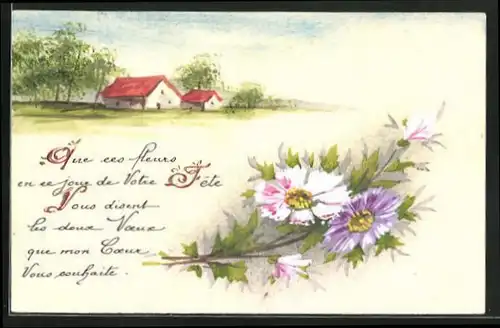 Que ces fleurs
en ce jour de Votre Fête
Vous disent
les doux Vœux
que mon Cœur
Vous souhaite.